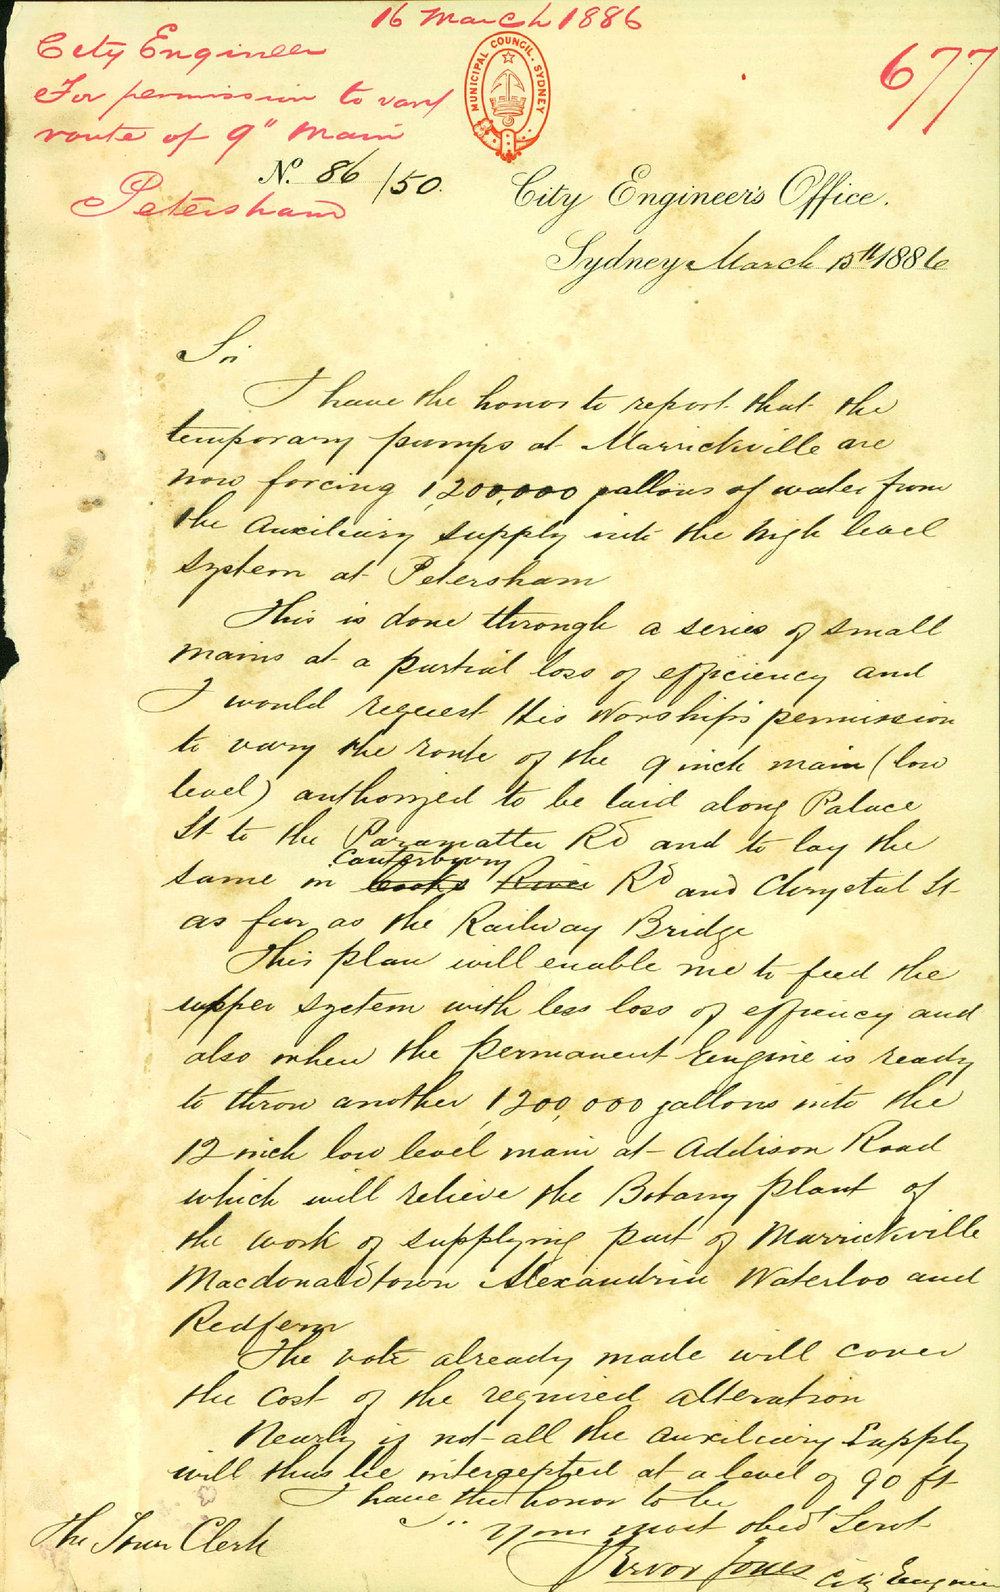 16 March 1886
City Engineer
For permission to vary
route of 9" Main
Petersham
677
MUNICIPAL COUNCIL. SYDNEY
No. 86/50.
City Engineer's Office.
Sydney March 15th 1886
Sir
I have the honor to report that the
temporary pumps at Marrickville are
now forcing 1,200,000 gallons of water from
the Auxiliary supply into the high level
system at Petersham
This is done through a series of small
mains at a partial loss of efficiency and
I would request His Worship's permission
to vary the route of the 9 inch main (low
level) authorized to be laid along Palace
St to the Paramatta Rd and to lay the
Canterbury
same in Cooks River Rd and Chrystal St
as far as the Railway Bridge
This plan will enable me to feed the
upper system with less loss of effiency and
also when the permanent Engine is ready
to throw another 1,200,000 gallons into the
12 inch low level main at Addison Road
which will relieve the Botany plant of
the work of supplying part of Marrickville
Macdonaldtown Alexandria Waterloo and
Redfern
The vote already made will cover
the cost of the required alteration
Nearly if not all the Auxiliary Supply
will thus be intercepted at a level of 90 ft
I have the honor to be
Your most obedt Servt
Trevor Jones City Engineer
The Town Clerk